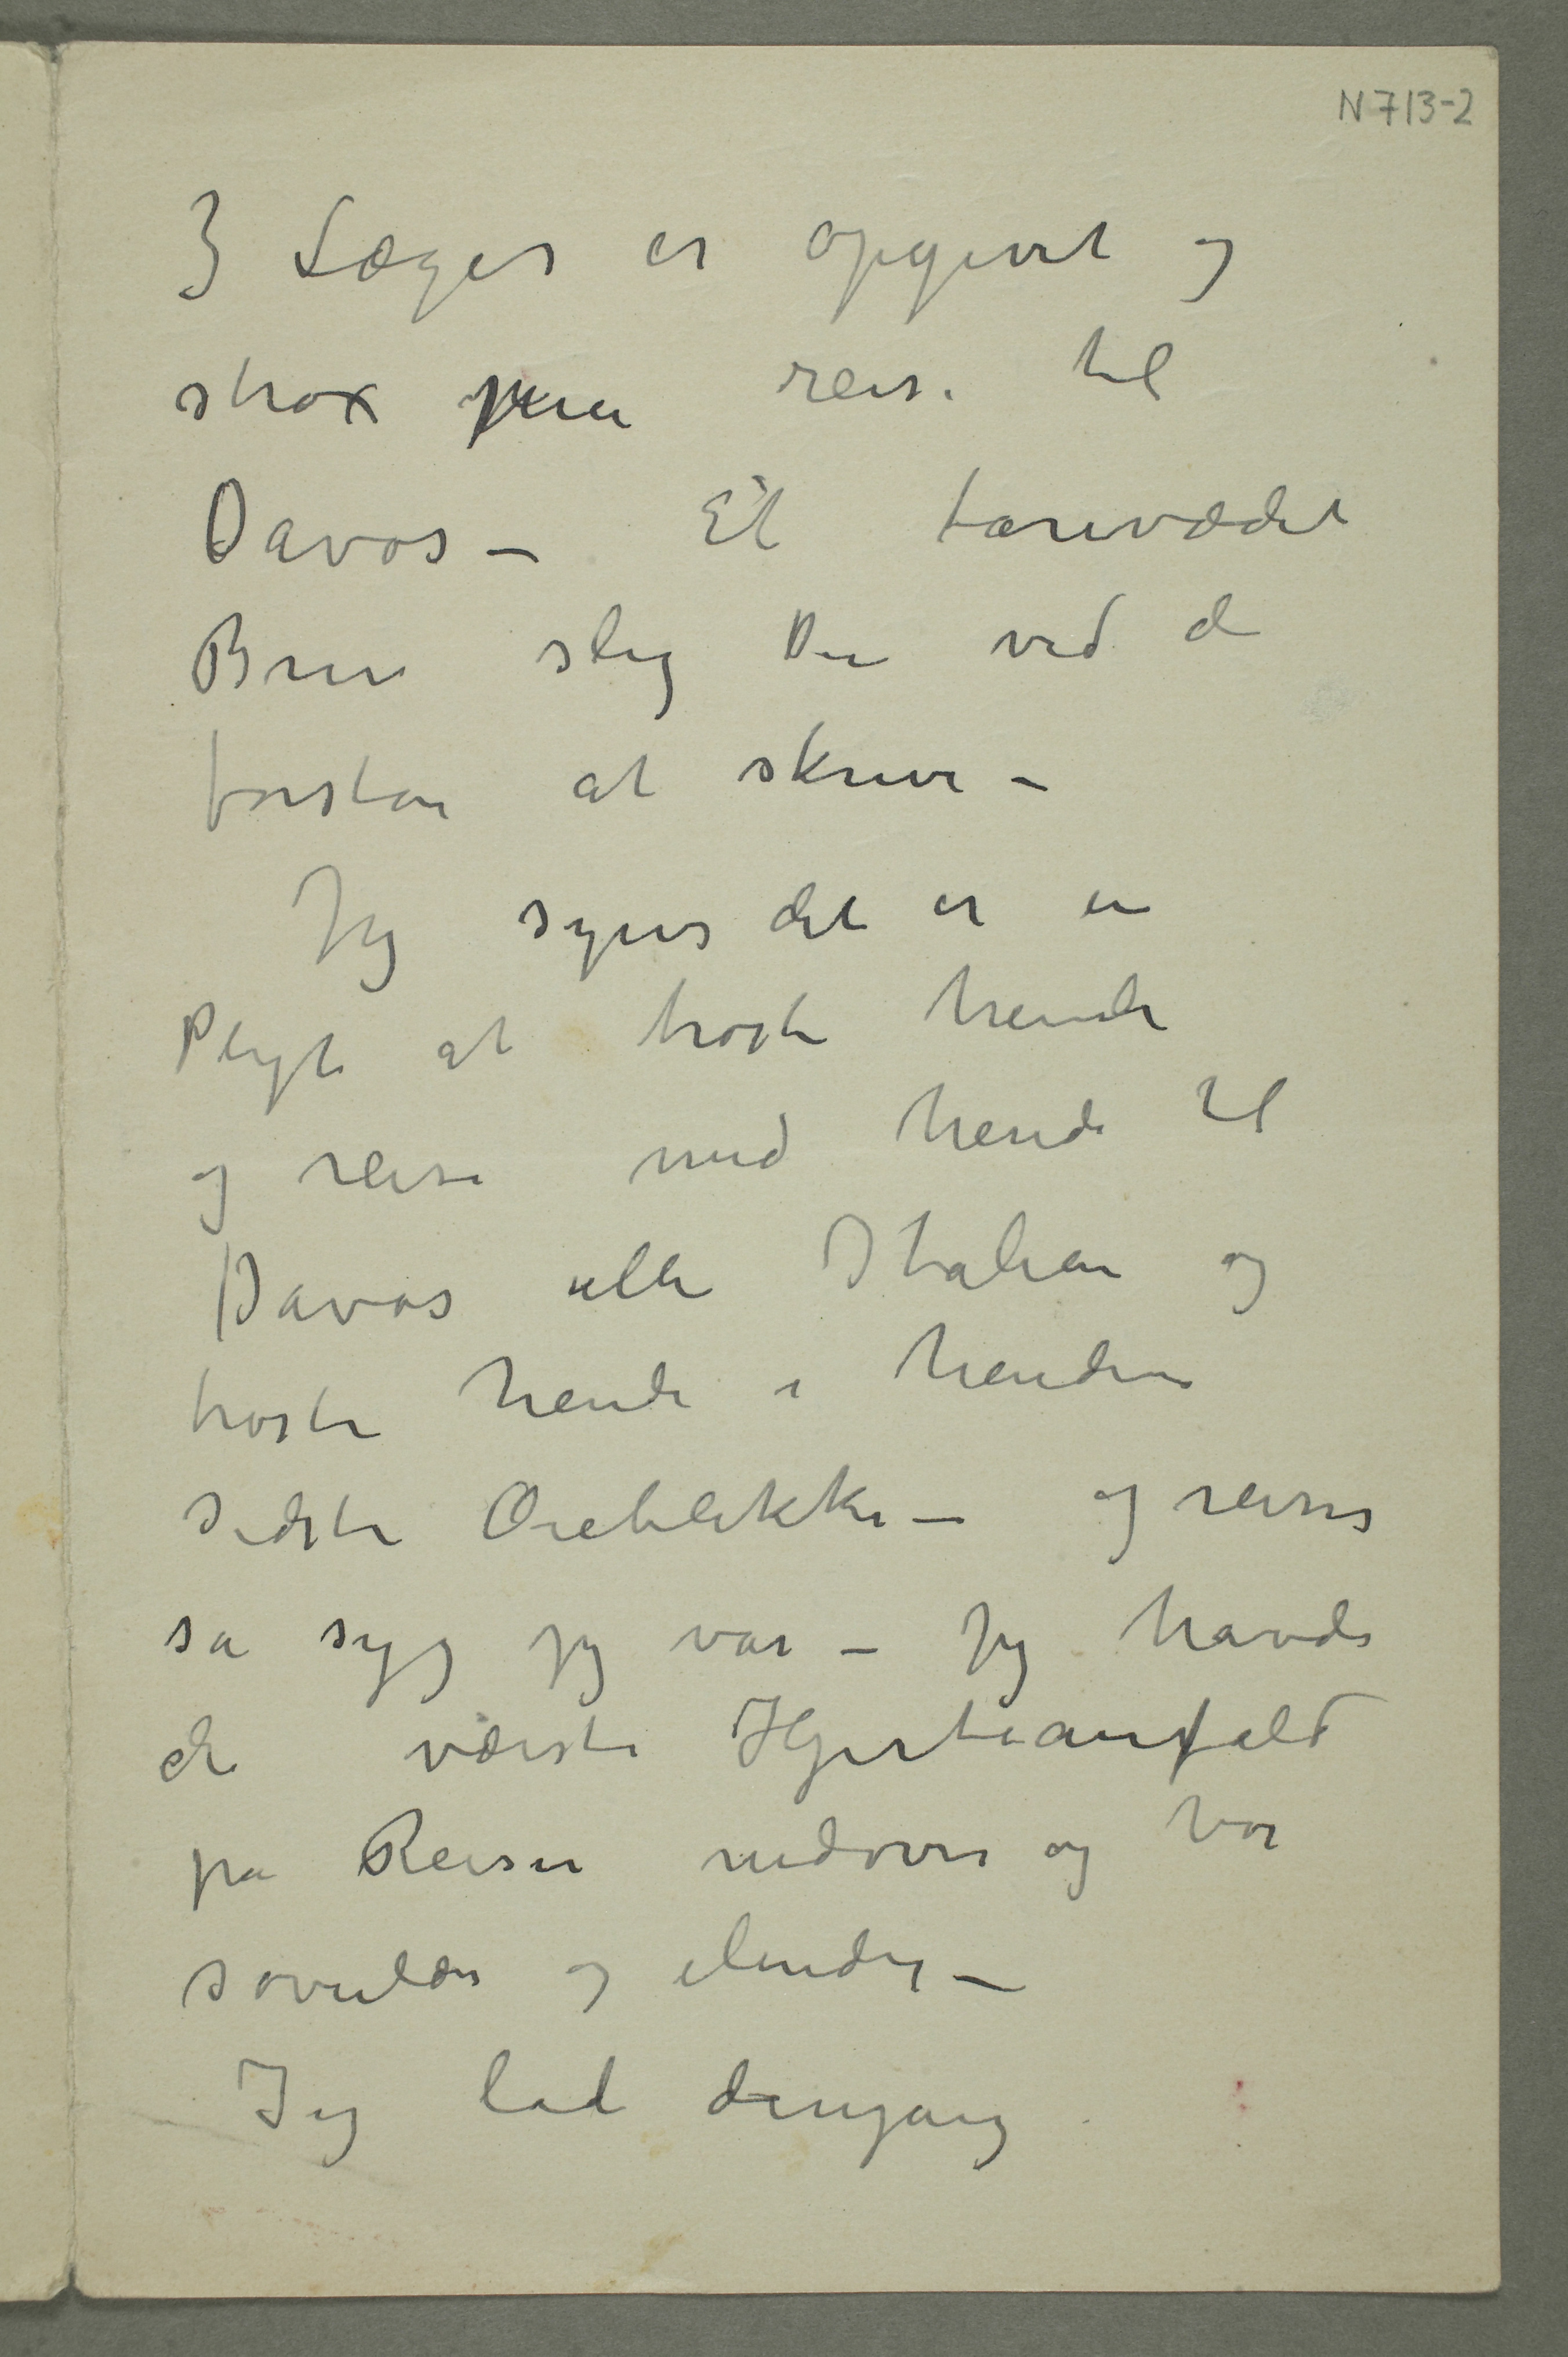 N 713-2
3 Læger er opgivet og
strax må reise til
Davos – Et tårevædet
Brev slig Du ved de
forstår at skrive –
Jeg synes det er en
Pligt at trøste hende
og reise med hende til
Davos eller Italien og
trøste hende i hendes
sidste Øieblikke – og reiser
så syg jeg var – Jeg havde
de værste Hjerteanfald
på Reisen nedover og var
søvnløs og elendig –
Jeg lod dengang